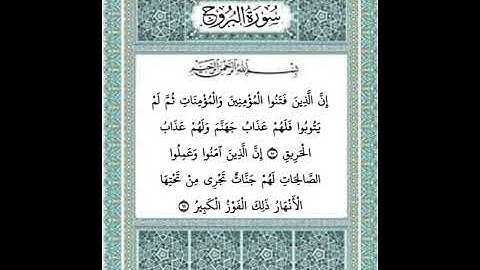 سُورَةُ الْبُرُوجِ
بِسْمِ اللَّهِ الرَّحْمَنِ الرَّحِيمِ
إِنَّ الَّذِينَ فَتَنُوا الْمُؤْمِنِينَ وَالْمُؤْمِنَاتِ ثُمَّ لَمْ
يَتُوبُوا فَلَهُمْ عَذَابُ جَهَنَّمَ وَلَهُمْ عَذَابُ
الْحَرِيقِ ﴿١٠﴾ إِنَّ الَّذِينَ آمَنُوا وَعَمِلُوا
الصَّالِحَاتِ لَهُمْ جَنَّاتٌ تَجْرِي مِنْ تَحْتِهَا
الْأَنْهَارُ ذَلِكَ الْفَوْزُ الْكَبِيرُ ﴿١١﴾